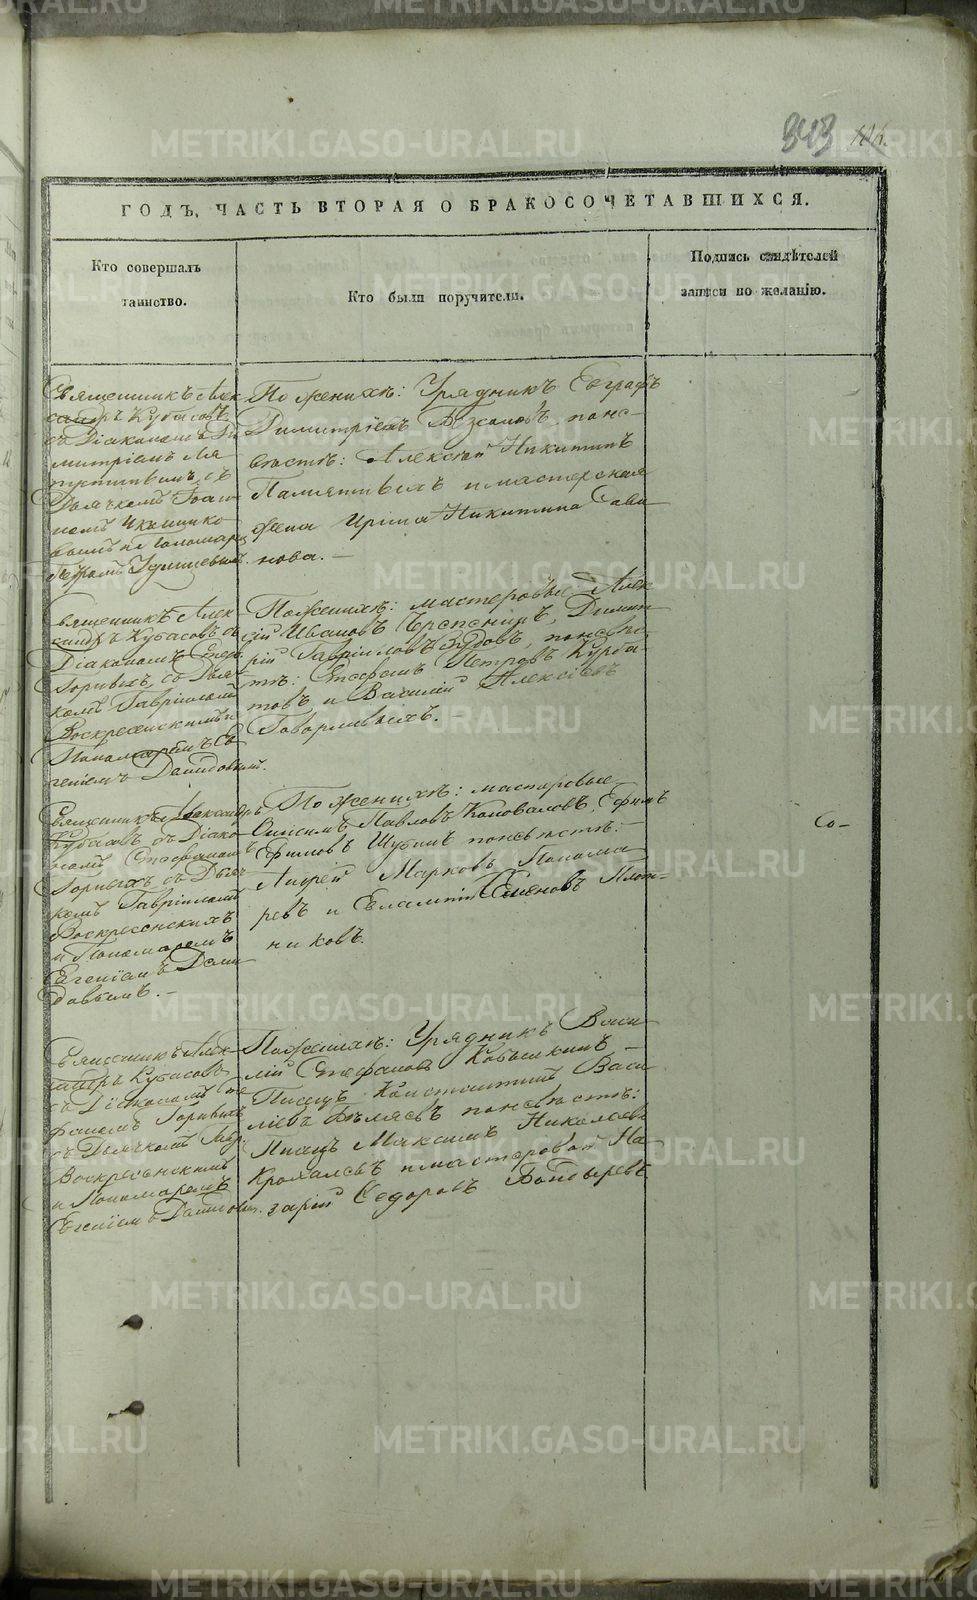 343
ГОДЪ, ЧАСТЬ ВТОРАЯ О БРАКОСОЧЕТАВШИХСЯ.
Кто совершалъ
таинство.
Кто были поручители.
Подпись свидѣтелей
записи по желанію.
Священникъ Алек
сандръ Кубасовъ
съ Діакономъ Ди
митріемъ
съ
Дьячкомъ Іоан
номъ
и Пономарем
Петромъ
По женихѣ: Урядникъ Евграфъ
Димитріевъ по не-
вѣстѣ: Алексѣй Никитинъ
и мастерская
жена Ирина Никитина Сави
нова. —
Священникъ Алек
сандръ Кубасовъ съ
Діакономъ Стеф.
Горныхъ, съ Дья
комъ Гавріиломъ
Воскресенскимъ и
Пономаремъ Ев
геніемъ Давыдовымъ.
По женихѣ: мастеровые Алек
сій Ивановъ Димит
рій Гавріиловъ Зудовъ, по невѣс
тѣ: Стефанъ Петровъ Курба
товъ и Василій Алексѣевъ
Говорливыхъ. —
Священникъ Александръ
Кубасовъ съ Діако
номъ Стефаномъ
Горныхъ съ Дья
комъ Гавріиломъ
Воскресенскимъ
и Пономаремъ
Евгеніемъ Давы
довымъ. —
По женихѣ: мастеровые
Онисимъ Павловъ Коноваловъ Ефимъ
Ефимовъ Шубинъ по невѣстѣ:
Андрей Марковъ Понома
ревъ и Евлампій Семеновъ Плот-
никовъ.
Со-
Священникъ Алек-
сандръ Кубасовъ
съ Діакономъ Сте
фаномъ Горныхъ
съ Дьячкомъ Гавр.
Воскресенскимъ
и Пономаремъ
Евгеніемъ Давыдовым.
По женихѣ: Урядникъ Васи
лій Стефановъ Кобышкинъ
Писецъ Константинъ Васи
льевъ Бѣляевъ по невѣстѣ:
Писецъ Максимъ Николаевъ
и мастеровой На
зарій Седоровъ Бондыревъ
METRIKI.GASO-URAL.RU